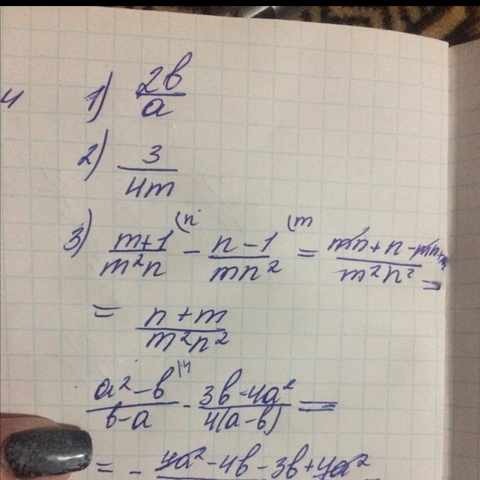 4 1) 2b/a
2) 3/4m
3) (m+1)/(m²n) (n - (n-1)/(mn²) (m = (mn+n-mn+m)/(m²n²) =
= (n+m)/(m²n²)
(a²-b)/(b-a) (4 - (3b-4a²)/(4(a-b)) =
= - (4a²-4b-3b+4a²)